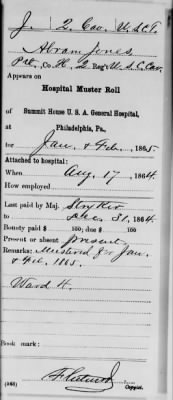 J. 2 Cav. U.S.C.T.
Abram Jones
Pvt., Co. H, 2 Reg't U.S.C. Cav.
Appears on
Hospital Muster Roll
of
Summit House U. S. A. General Hospital,
at Philadelphia, Pa.,
for Jan. & Feb., 1865
Attached to hospital:
When Aug. 17, 1864
How employed
Last paid by Maj. Stryker
to Dec. 31, 1864
Bounty paid $ 100; due $ 100
Present or absent present
Remarks: Mustered for Jan.
& Feb. 1865.
Ward H.
Book mark:
(343)
Copyist.